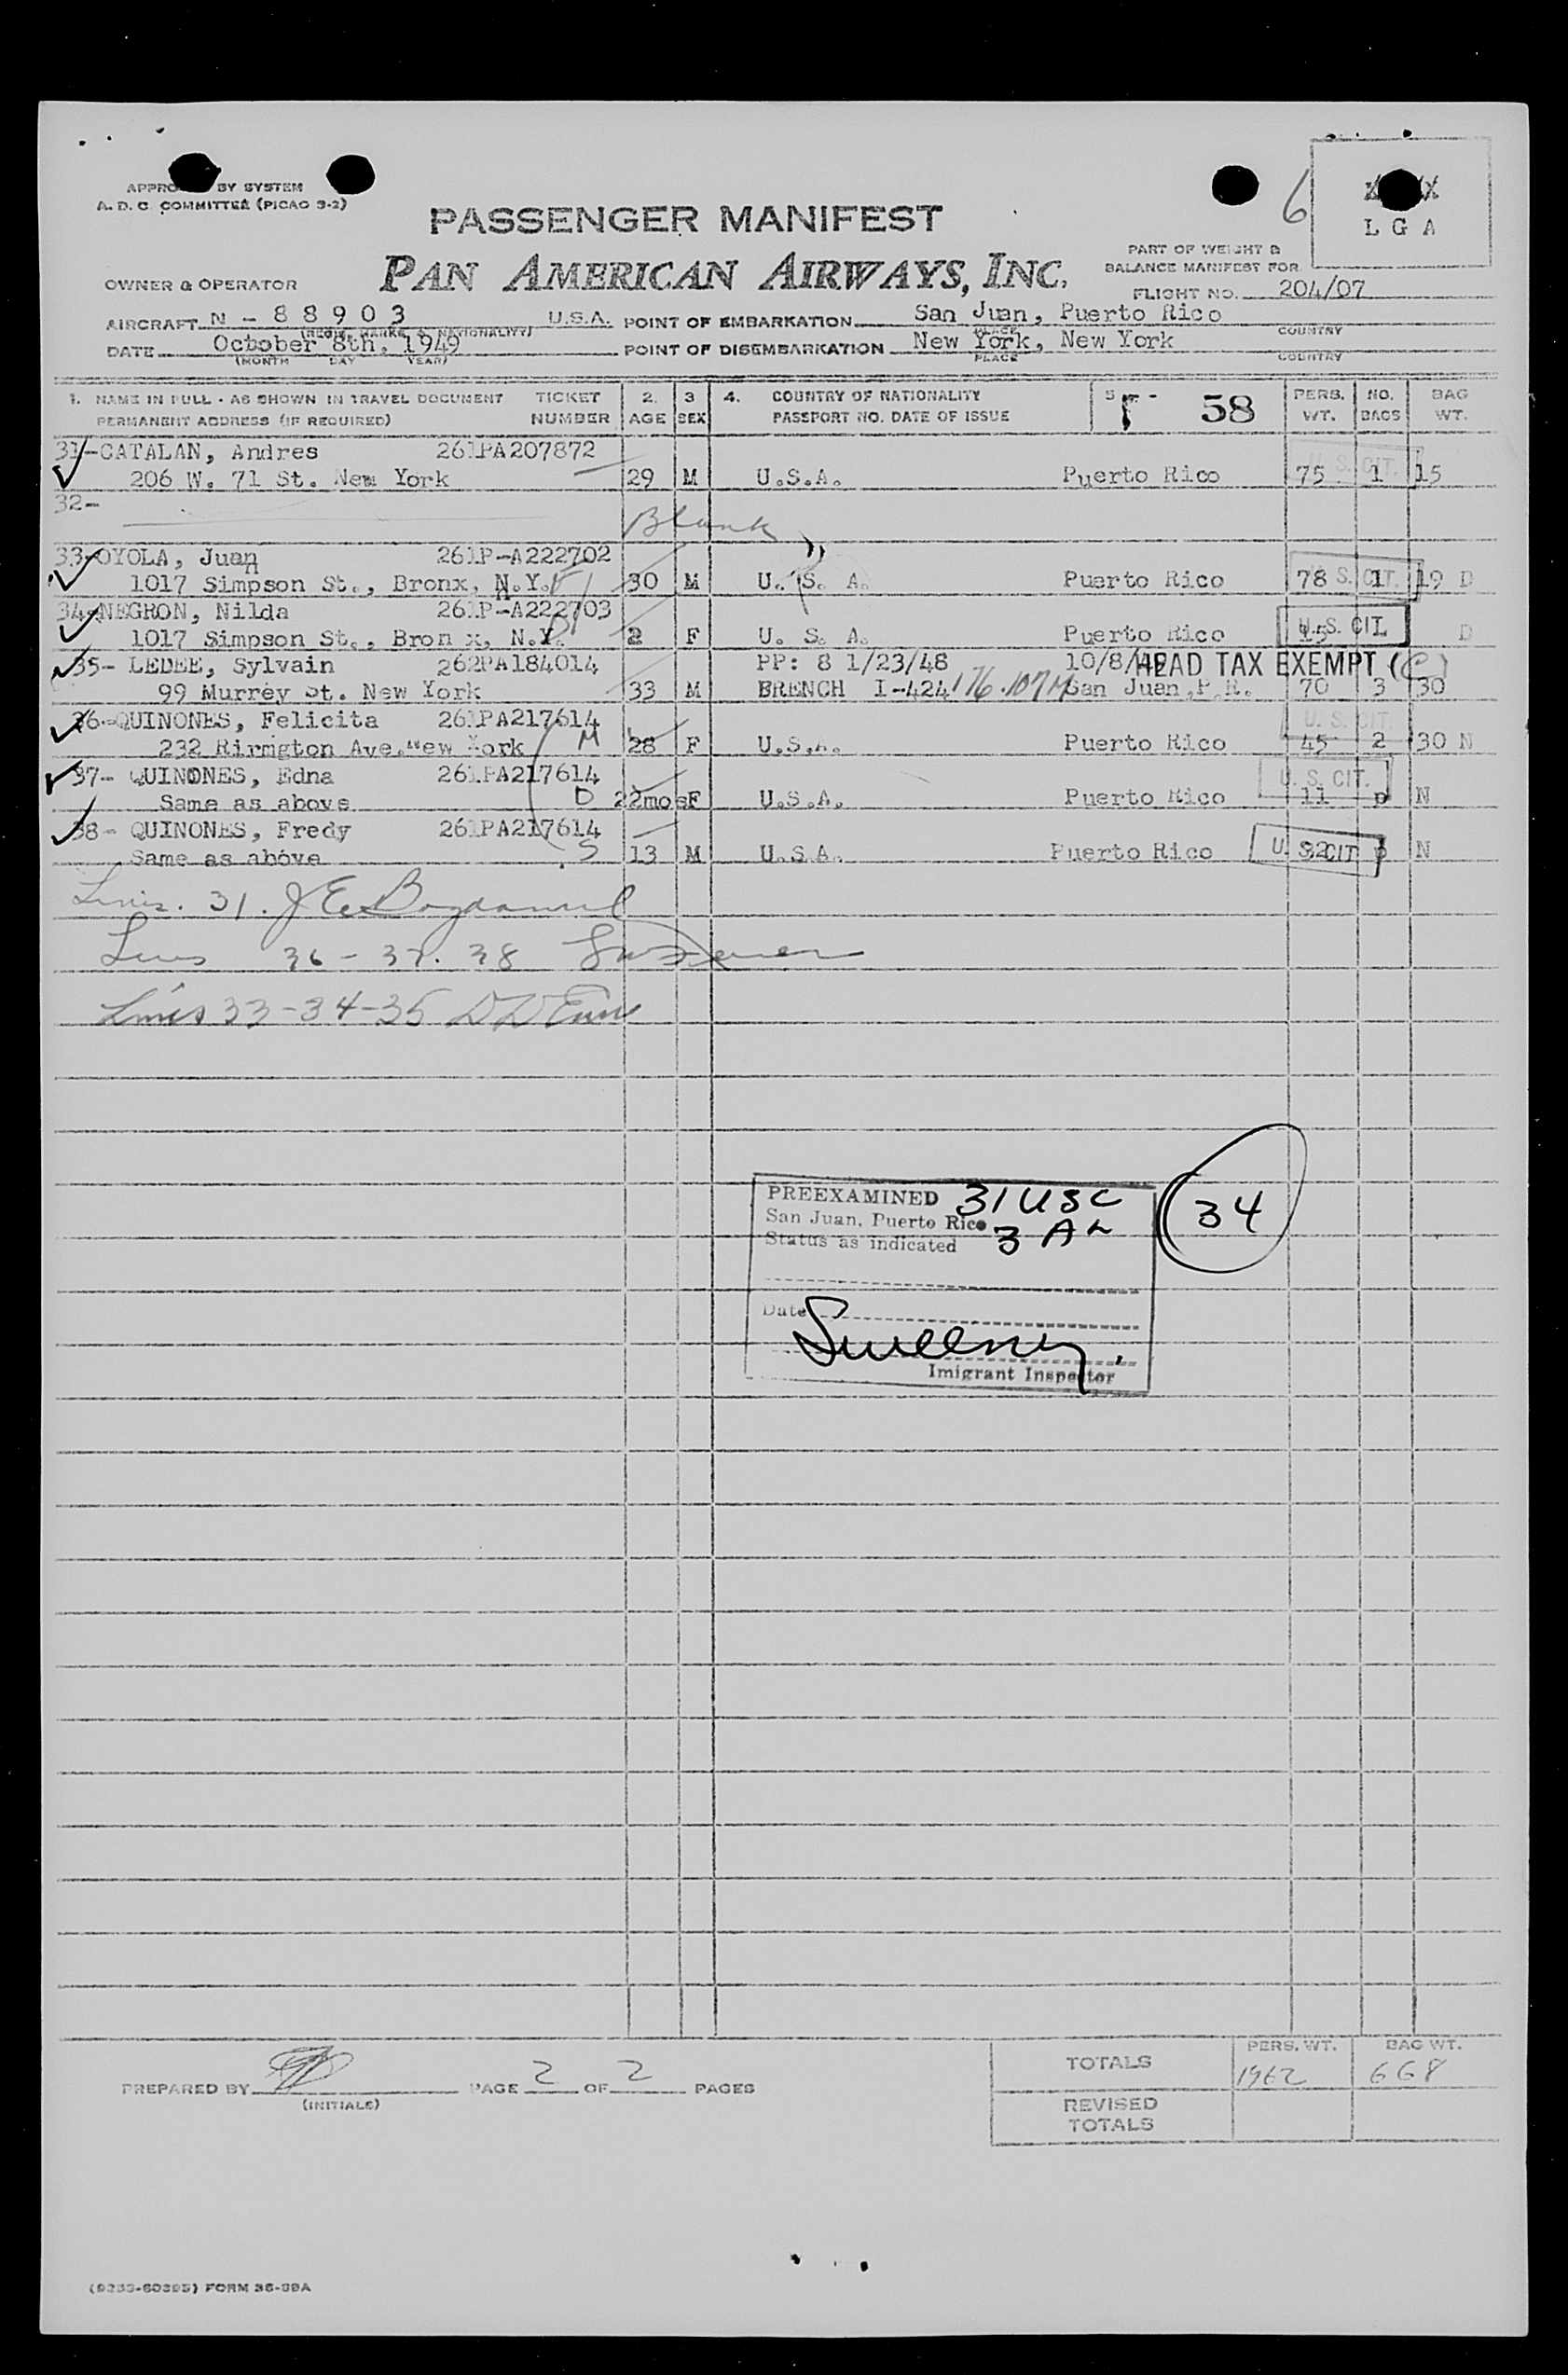 APPRO BY SYSTEM
A. D. C. COMMITTEE (PICAO S-2)
6
L G A
PASSENGER MANIFEST
PAN AMERICAN AIRWAYS, INC.
PART OF WEIGHT &
BALANCE MANIFEST FOR
OWNER & OPERATOR
FLIGHT NO. 204/07
AIRCRAFT N - 8 8 9 0 3 U.S.A. POINT OF EMBARKATION San Juan, Puerto Rico
(REGIS. MARKS & NATIONALITY) PLACE COUNTRY
DATE October 8th, 1949 POINT OF DISEMBARKATION New York, New York
(MONTH DAY YEAR) PLACE COUNTRY
1. NAME IN FULL - AS SHOWN IN TRAVEL DOCUMENT TICKET 2. 3 4. COUNTRY OF NATIONALITY 5 58 PERS. NO. BAG
PERMANENT ADDRESS (IF REQUIRED) NUMBER AGE SEX PASSPORT NO. DATE OF ISSUE WT. BAGS WT.
31-CATALAN, Andres 261PA207872 U. S. CIT.
206 W. 71 St. New York 29 M U.S.A. Puerto Rico 75 1 15
32-
Blank
33-OYOLA, Juan 261P-A222702
1017 Simpson St., Bronx, N.Y. 30 M U. S. A. Puerto Rico 78 1 19 D
34-NEGRON, Nilda 261P-A222703 U. S. CIT.
1017 Simpson St., Bron x, N.Y. 2 F U. S. A. Puerto Rico 15 1 D
35- LEDEE, Sylvain 262PA184014 PP: 8 1/23/48 10/8/49 HEAD TAX EXEMPT (C)
99 Murrey St. New York 33 M BRENCH I-424 176.107M San Juan, P.R. 70 3 30
36-QUINONES, Felicita 261PA217614 U. S. CIT.
232 Rirmgton Ave. New York M 28 F U.S.A. Puerto Rico 45 2 30 N
37- QUINONES, Edna 261PA217614 U. S. CIT.
Same as above D 22mos F U.S.A. Puerto Rico 11 p N
38- QUINONES, Fredy 261PA217614
Same as above S 13 M U.S.A. Puerto Rico U. S. CIT 32 p N
31.
36 - 37. 38
Lines 33-34-35
PREEXAMINED 31 USC
San Juan, Puerto Rico
34
Status as indicated
Date
Sweeney
Imigrant Inspector
PREPARED BY PAGE 2 OF 2 PAGES
(INITIALS)
TOTALS PERS. WT. 1962 BAG WT. 668
REVISED
TOTALS
FORM 36-89A